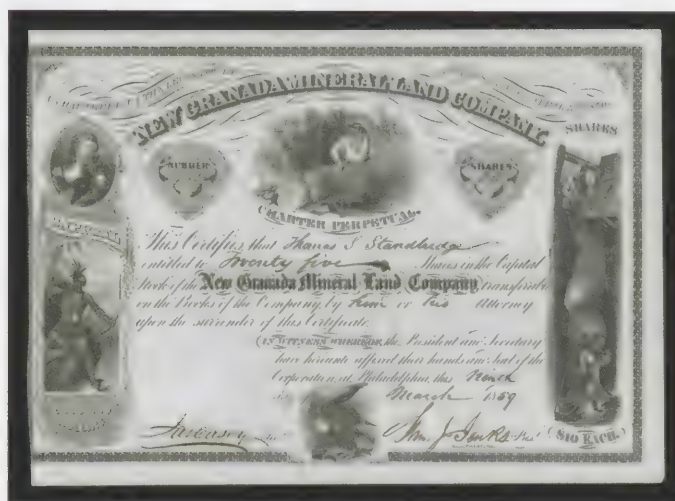 NEW GRANADA MINERAL LAND COMPANY.
SHARES
NUMBER
SHARES
CHARTER PERPETUAL.
CAPITAL
This Certifies that Thomas S Standbridge
entitled to Twenty five Shares in the Capital
Stock of the New Granada Mineral Land Company, transferable
on the Books of the Company, by him or his Attorney
upon the surrender of this Certificate.
IN WITNESS WHEREOF, the President and Secretary
have hereunto affixed their hands and Seal of the
Corporation at Philadelphia, this Ninth
March 1859
($10 EACH.)